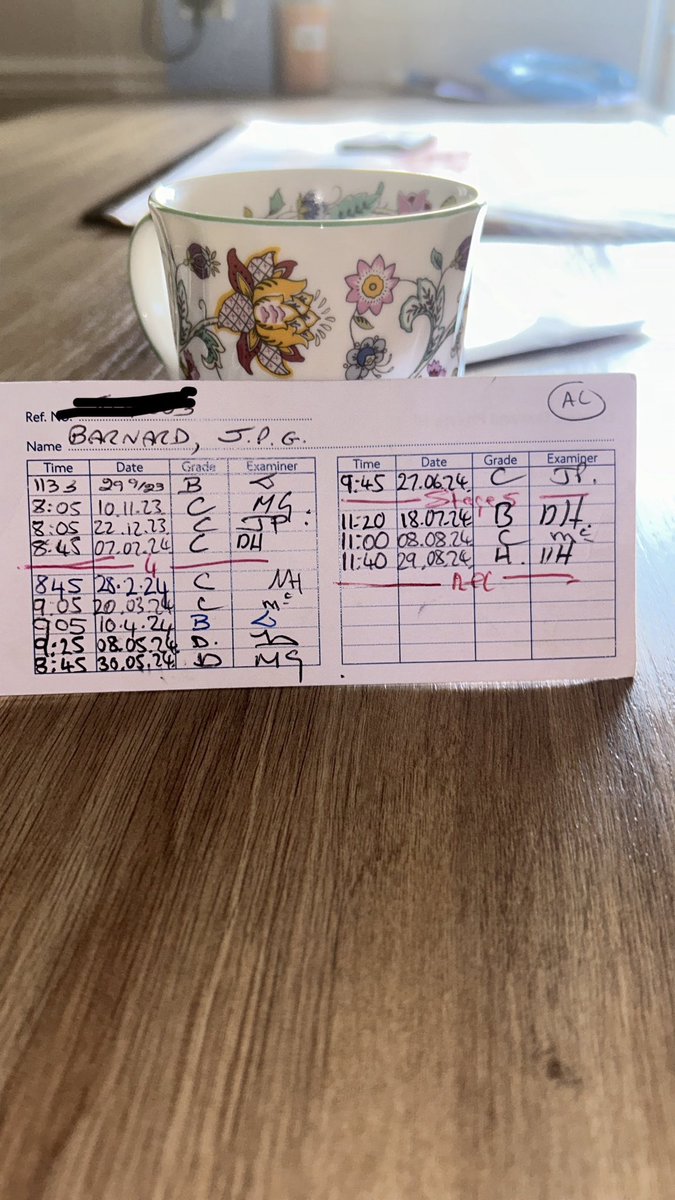 AC
Ref. No.
Name BARNARD, J.P.G.
Time Date Grade Examiner
1133 29 9/23 B
8:05 10.11.23 C MG.
8:05 22.12.23 C JP.
8:45 07.02.24 C DH
4
845 28.2.24 C NH
9:05 20.03.24 C mc
905 10.4.24 B
9:25 08.05.24 D.
8:45 30.05.24 D MG
Time Date Grade Examiner
9:45 27.06.24 C JP.
Stage 5
11:20 18.07.24 B DH.
11:00 08.08.24 C mc
11:40 29.08.24 H. DH
APC